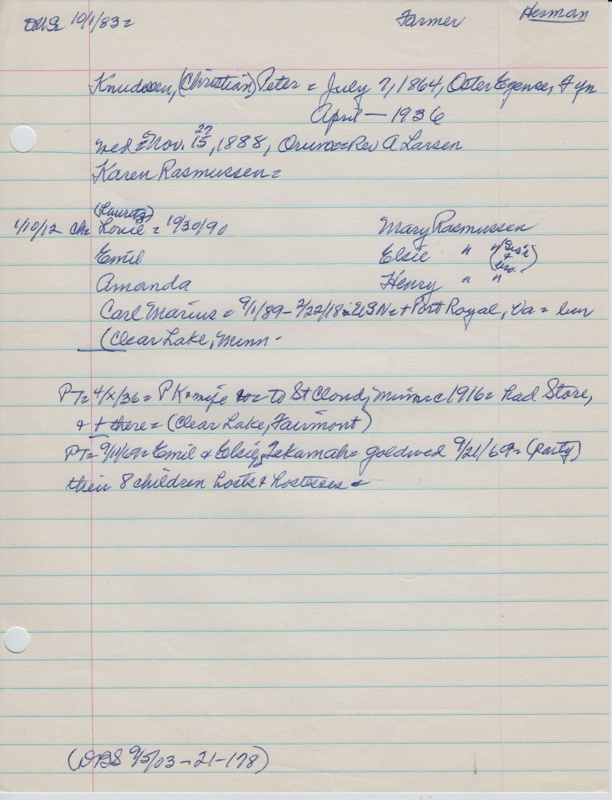 10/1/83= Farmer Herman
Knudsen, (Christian) Peter = July 7, 1864, Oster Egense, Fyn
April — 1936
wed = Nov. 15, 27 1888, Orum = Rev A Larsen
Karen Rasmussen =
(Lauritz)
1/10/12 Ch= Louie = 10/30/90 Mary Rasmussen
Emil Elsie "
Amanda Henry " "
Carl Marius = 9/1/89 - 2/22/18 = USN = + Port Royal, Va = bur
(Clear Lake, Minn -
PT= 4/x/36 = P K & wife to St Cloud, Minn c 1916 = had Store,
& + there = (Clear Lake, Fairmont)
PT= 9/11/69 = Emil & Elsie, Tekamah = goldwed 9/21/69 = (party)
their 8 children hosts & hostesses =
(DBS 9/5/03 - 21 - 178)